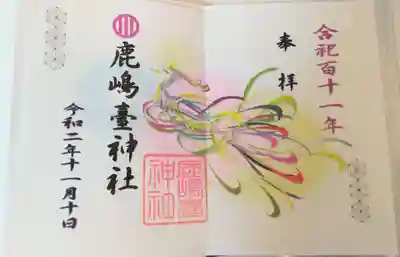 合祀百十一年
奉拝
鹿嶋臺神社
令和二年十一月十日
鹿嶋臺
神社